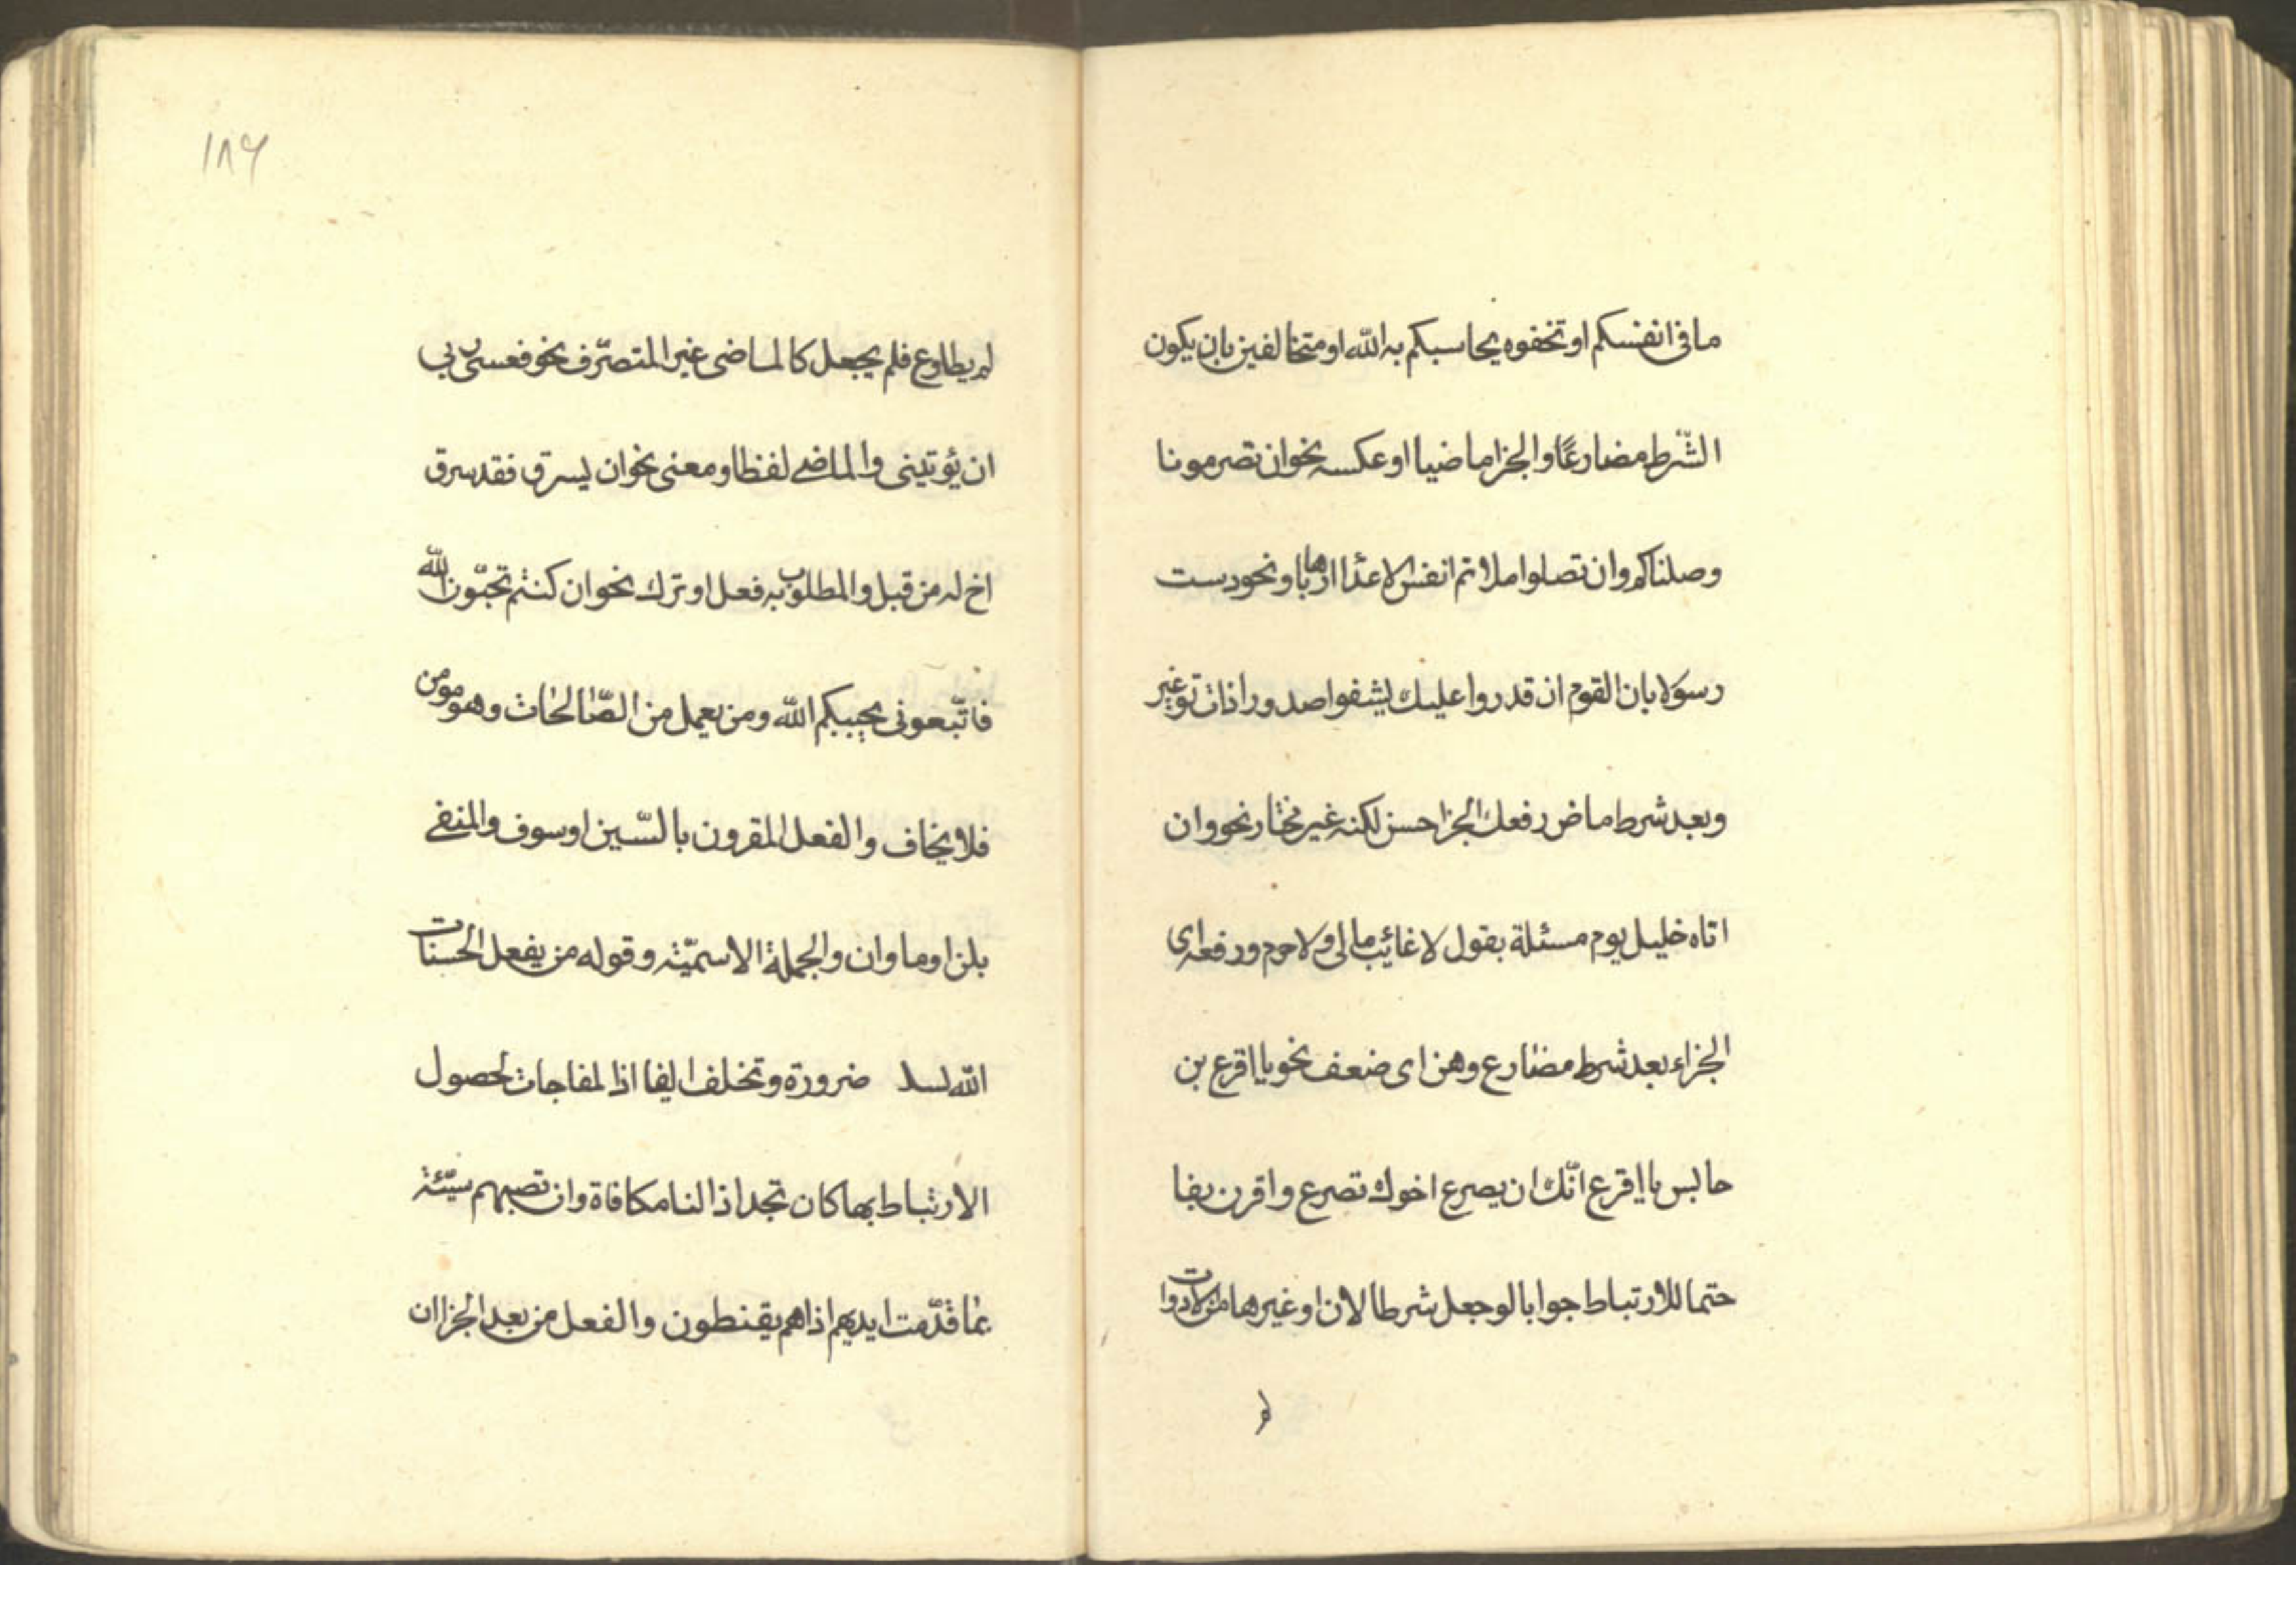 ما فی انفسکم او تخفوه یحاسبکم به الله او متخالفین بان یکون
الشّرط مضارعًا والجزا ماضیا او عکسه نحو ان تصرمونا
وصلناکم وان تصلوا ملاتم انفس الاعدا ارهابا ونحو دست
رسولا بان القوم ان قدروا علیک یشفوا صدورا ذات توغیر
وبعد شرط ماض رفعک الجزا حسن لکنه غیر مختار نحو وان
اتاه خلیل یوم مسئلة یقول لا غائب مالی ولا حرم ورفعه ای
الجزاء بعد شرط مضارع وهن ای ضعف نحو یا اقرع بن
حابس یا اقرع انّک ان یصرع اخوک تصرع واقرن بفا
حتما للارتباط جوابا لو جعل شرطا لان او غیرها من الادوات
لم
١٨۶
لم یطاوع فلم یجعل کالماضی غیر المتصرّف نحو فعسی ربی
ان یؤتینی والماضی لفظا ومعنی نحو ان یسرق فقد سرق
اخ له من قبل والمطلوب به فعل او ترک نحو ان کنتم تحبّون الله
فاتّبعونی یحببکم الله ومن یعمل من الصّالحات وهو مومن
فلا یخاف والفعل المقرون بالسّین او سوف والمنفی
بلن او ما وان والجملة الاسمیّة وقوله من یفعل الحسنات
الله ضرورة وتخلف الفا اذا لمفاجات لحصول
الارتباط بها کان تجد اذا لنا مکافاة وان تصبهم سیّئة
بما قدّمت ایدیهم اذا هم یقنطون والفعل من بعد الجزا ان